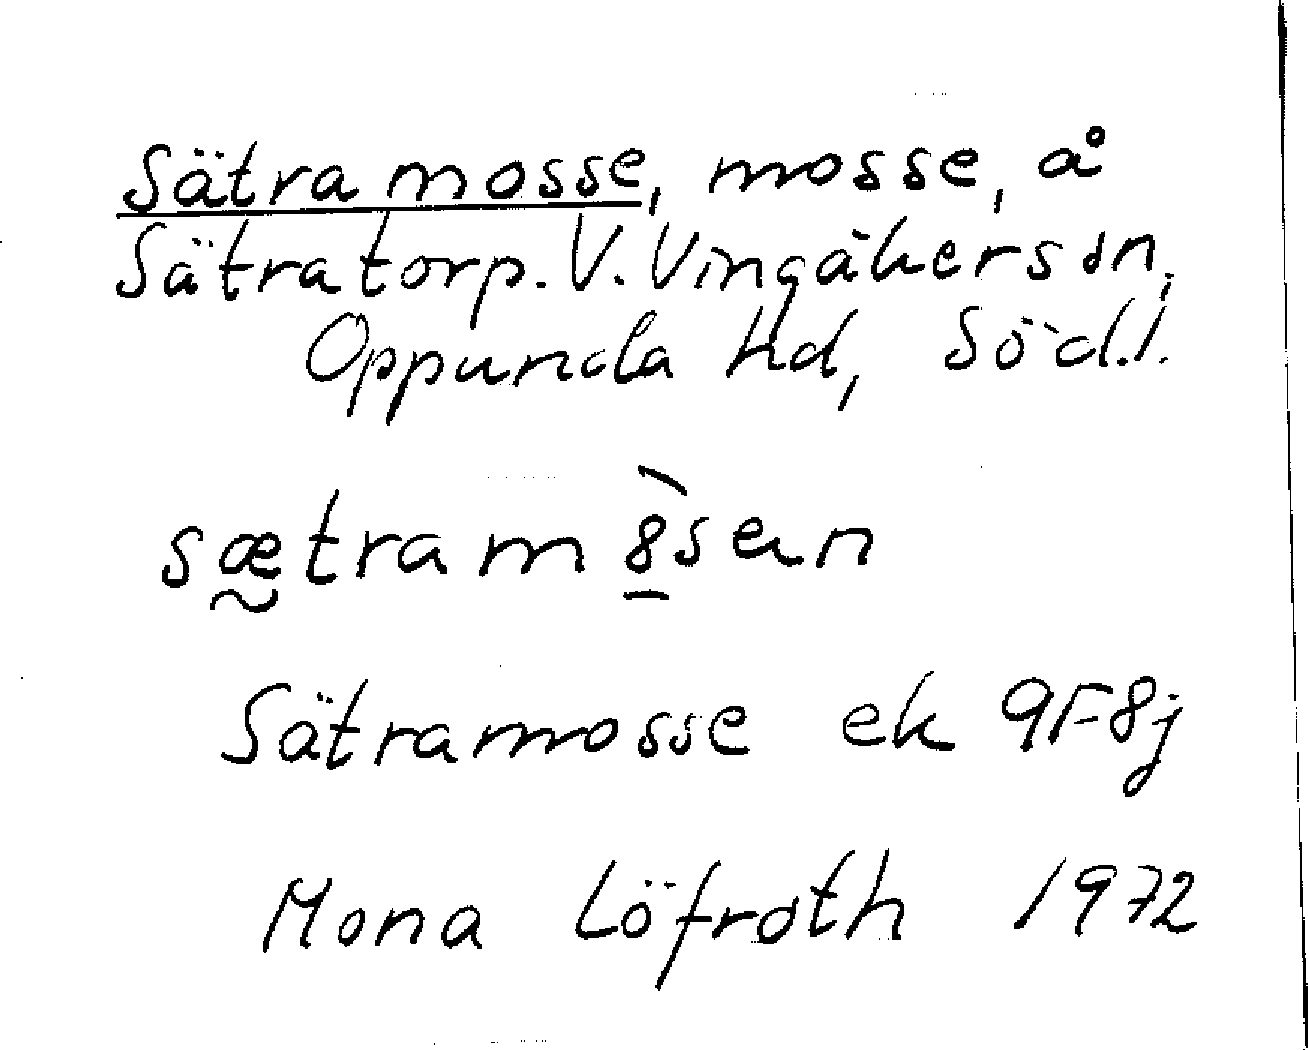 Sätramosse, mosse, å
Sätratorp. V. Vingåkers sn,
Oppunda hd, Söd.l.
sætram8̀san
Sätramosse ek 9F8j
Mona Löfroth 1972